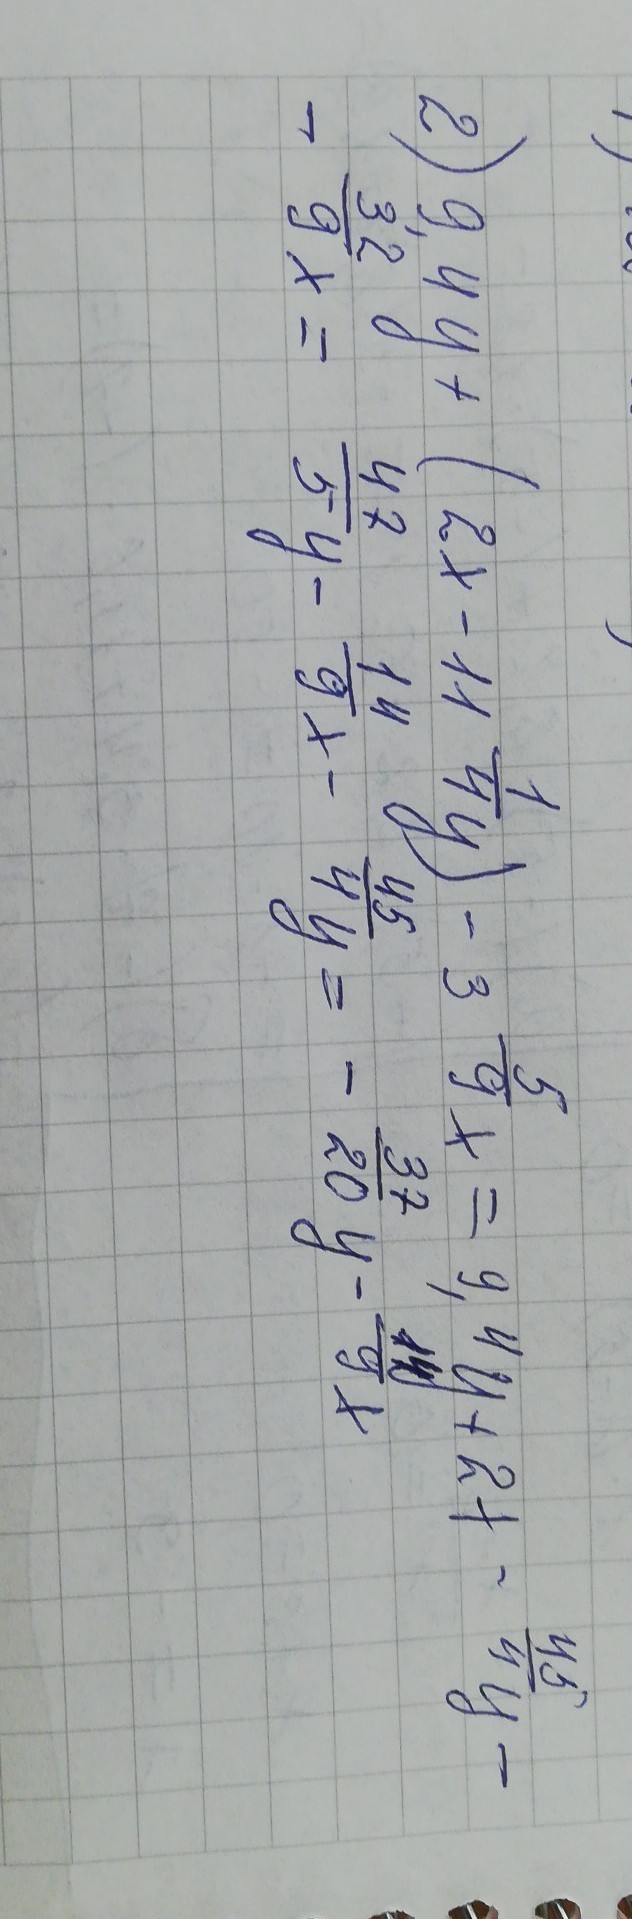 1)
2) 9,4y + (2x - 11 1/4 y) - 3 5/9 x = 9,4y + 2x - 45/4 y -
- 32/9 x = 47/5 y - 14/9 x - 45/4 y = - 37/20 y - 14/9 x